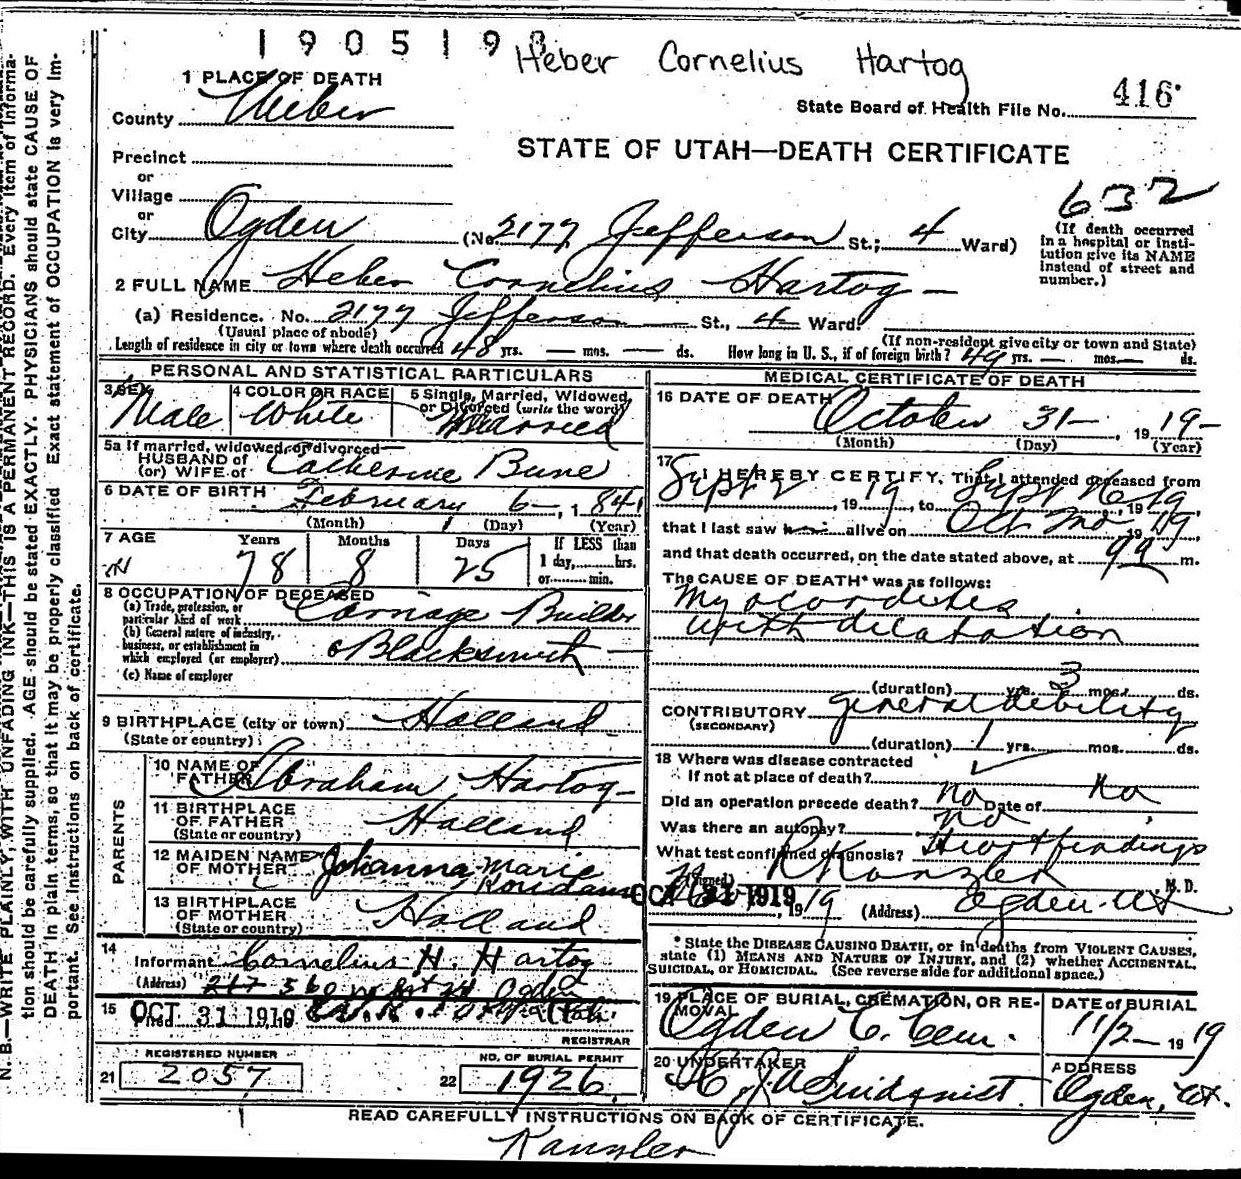 1905199
Heber Cornelius Hartog
1 PLACE OF DEATH
State Board of Health File No. 416
County Weber
STATE OF UTAH—DEATH CERTIFICATE
Precinct
or
Village
or
632
City Ogden (No. 2177 Jefferson St.; 4 Ward)
(If death occurred in a hospital or institution give its NAME instead of street and number.)
2 FULL NAME Heber Cornelius Hartog
(a) Residence. No. 2177 Jefferson St., 4 Ward.
(Usual place of abode) (If non-resident give city or town and State)
Length of residence in city or town where death occurred 48 yrs. — mos. — ds. How long in U. S., if of foreign birth? 49 yrs. — mos. — ds.
PERSONAL AND STATISTICAL PARTICULARS
3 SEX Male
4 COLOR OR RACE White
5 Single, Married, Widowed, or Divorced (write the word) Married
5a If married, widowed, or divorced
HUSBAND of
(or) WIFE of Catherine Bune
6 DATE OF BIRTH February 6, 1841
(Month) (Day) (Year)
7 AGE Years 78 Months 8 Days 25 If LESS than 1 day,......hrs. or......min.
8 OCCUPATION OF DECEASED
(a) Trade, profession, or particular kind of work Carriage Builder
(b) General nature of industry, business, or establishment in which employed (or employer) & Blacksmith
(c) Name of employer
9 BIRTHPLACE (city or town) Holland
(State or country)
PARENTS
10 NAME OF FATHER Abraham Hartog
11 BIRTHPLACE OF FATHER Holland
(State or country)
12 MAIDEN NAME OF MOTHER Johanna Marie
13 BIRTHPLACE OF MOTHER Holland
(State or country)
14
Informant Cornelius H. Hartog
(Address) Ogden
15 Filed OCT 31 1919
REGISTRAR
REGISTERED NUMBER
21 2057
NO. OF BURIAL PERMIT
22 1926
MEDICAL CERTIFICATE OF DEATH
16 DATE OF DEATH October 31, 1919
(Month) (Day) (Year)
17 I HEREBY CERTIFY, That I attended deceased from
Sept 2, 1919, to Sept 1919,
that I last saw h alive on Oct 1919
and that death occurred, on the date stated above, at m.
The CAUSE OF DEATH* was as follows:
Myocarditis
with dilatation
(duration) yrs. 3 mos. ds.
CONTRIBUTORY general debility
(SECONDARY)
(duration) 1 yrs. mos. ds.
18 Where was disease contracted
If not at place of death?
Did an operation precede death? no Date of no
Was there an autopsy? no
What test confirmed diagnosis? Heart findings
(Signed) Kanzler M. D.
OCT 31 1919, 1919 (Address) Ogden Ut
* State the DISEASE CAUSING DEATH, or in deaths from VIOLENT CAUSES, state (1) MEANS AND NATURE OF INJURY, and (2) whether ACCIDENTAL, SUICIDAL, or HOMICIDAL. (See reverse side for additional space.)
19 PLACE OF BURIAL, CREMATION, OR REMOVAL Ogden C. Cem.
DATE of BURIAL 11/2 1919
20 UNDERTAKER Lindquist
ADDRESS Ogden, Ut.
READ CAREFULLY INSTRUCTIONS ON BACK OF CERTIFICATE.
Kanzler
N. B.—WRITE PLAINLY, WITH UNFADING INK—THIS IS A PERMANENT RECORD. Every item of information should be carefully supplied. AGE should be stated EXACTLY. PHYSICIANS should state CAUSE OF DEATH in plain terms, so that it may be properly classified. Exact statement of OCCUPATION is very important. See instructions on back of certificate.